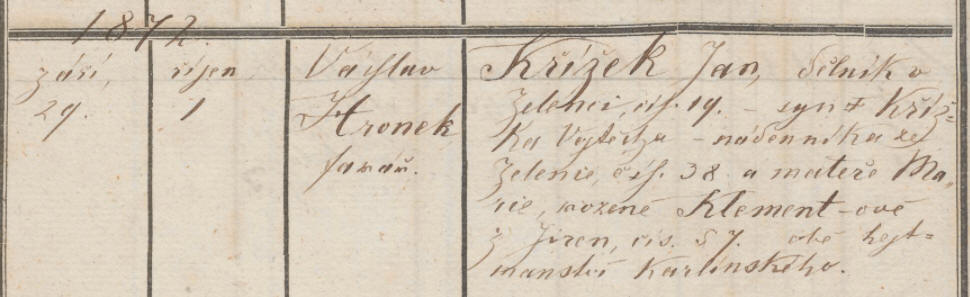 1872.
září, 29.
říjen 1
Václav
Hronek
farář.
Křížek Jan, dělník v
Zelenči, čís. 19. – syn † Kříž-
ka Vojtěcha – nádenníka ze
Zelenče, čís. 38 a mateře Ma-
rie, rozené Klement-ové
z Jiren, čís. 57. obé hejt-
manství Karlínského.